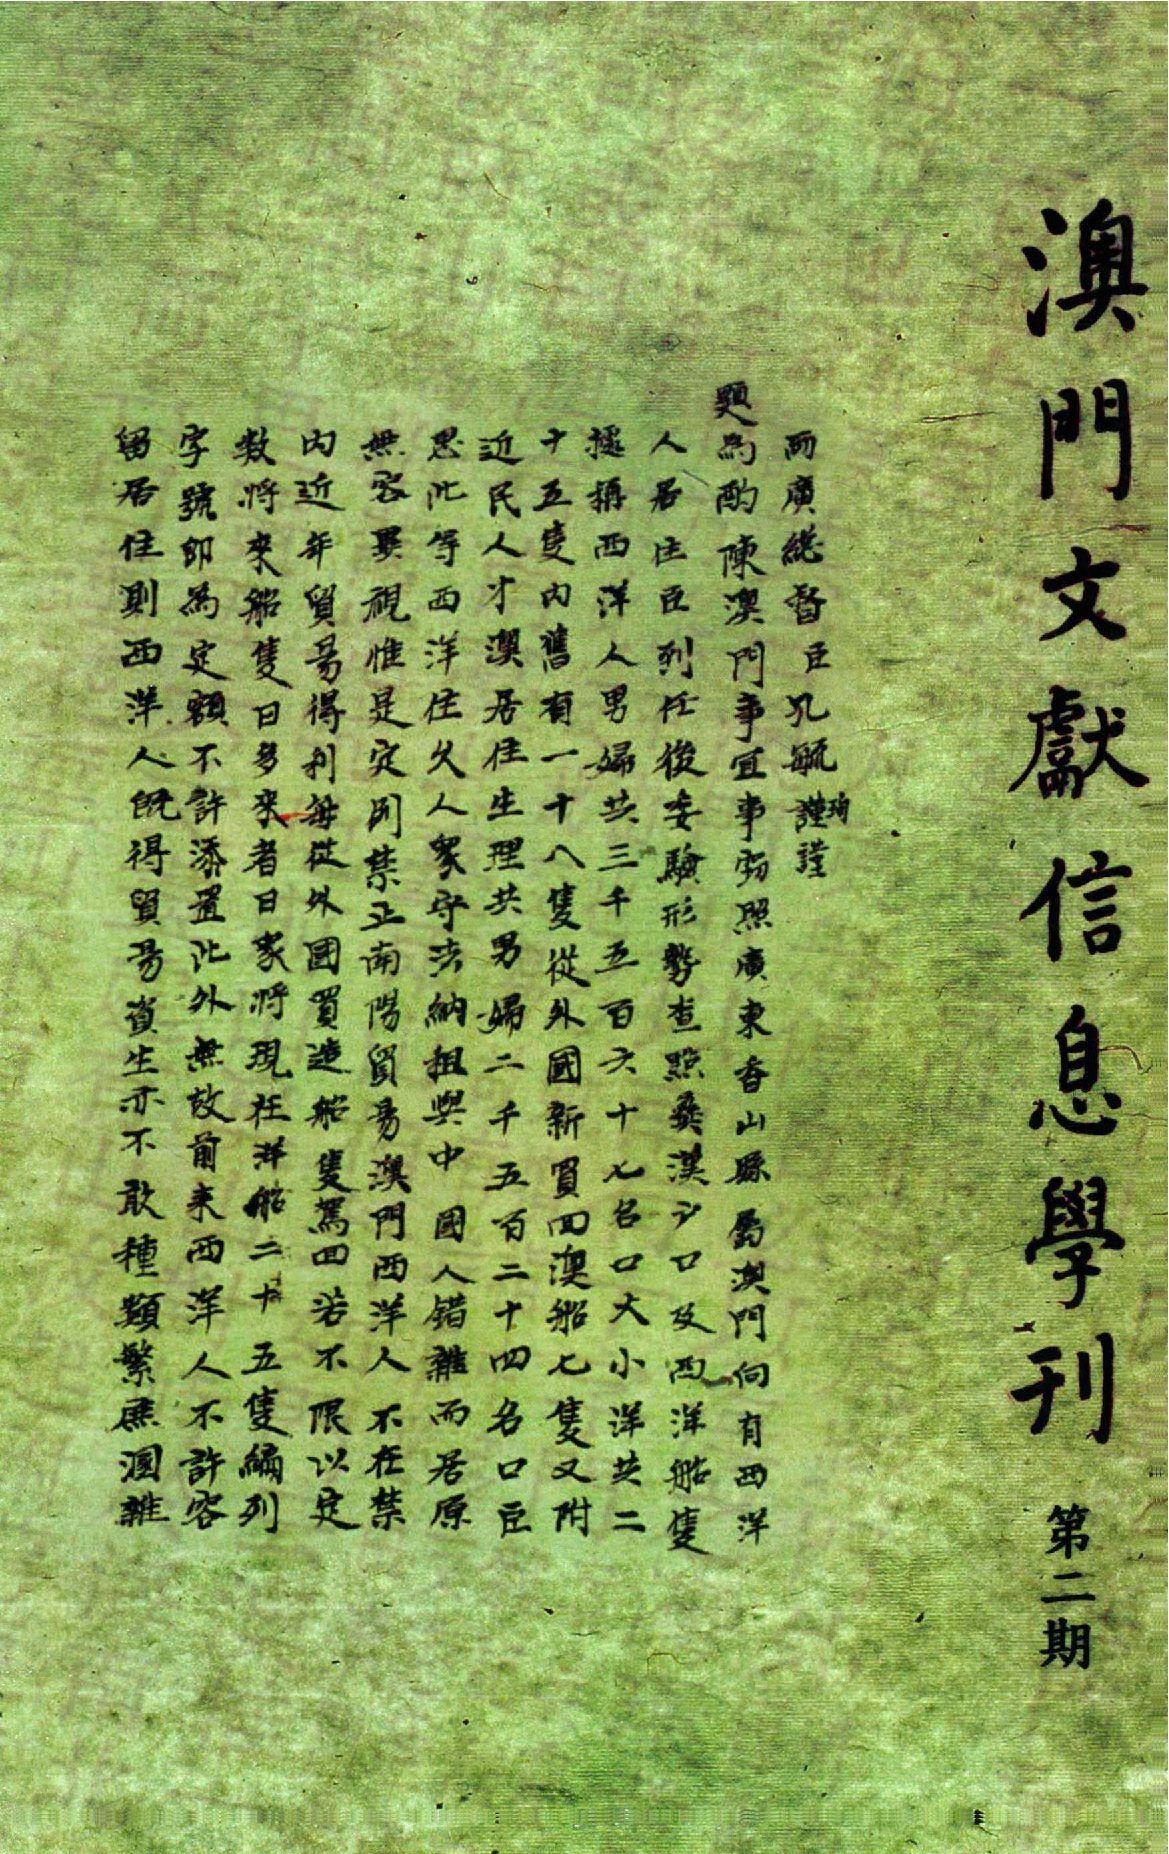 澳門文獻信息學刊 第二期
兩廣總督臣孔毓珣謹
題為酌陳澳門事宜事竊照廣東香山縣屬澳門向有西洋
人居住臣到任後委驗形勢查點彝漢戶口及西洋船隻
據稱西洋人男婦共三千五百六十七名口大小洋共二
十五隻內舊有一十八隻從外國新買回澳船七隻又附
近民人才澳居住生理共男婦二千五百二十四名口臣
思此等西洋住久人眾守法納租與中國人錯雜而居原
無容異視惟是定例禁止南陽貿易澳門西洋人不在禁
內近年貿易得利每從外國買造船隻駕回若不限以定
數將來船隻日多來者日眾將現在洋船二十五隻編列
字號即為定額不許添置此外無故前來西洋人不許容
留居住則西洋人既得貿易資生亦不敢種類繁庶溷雜